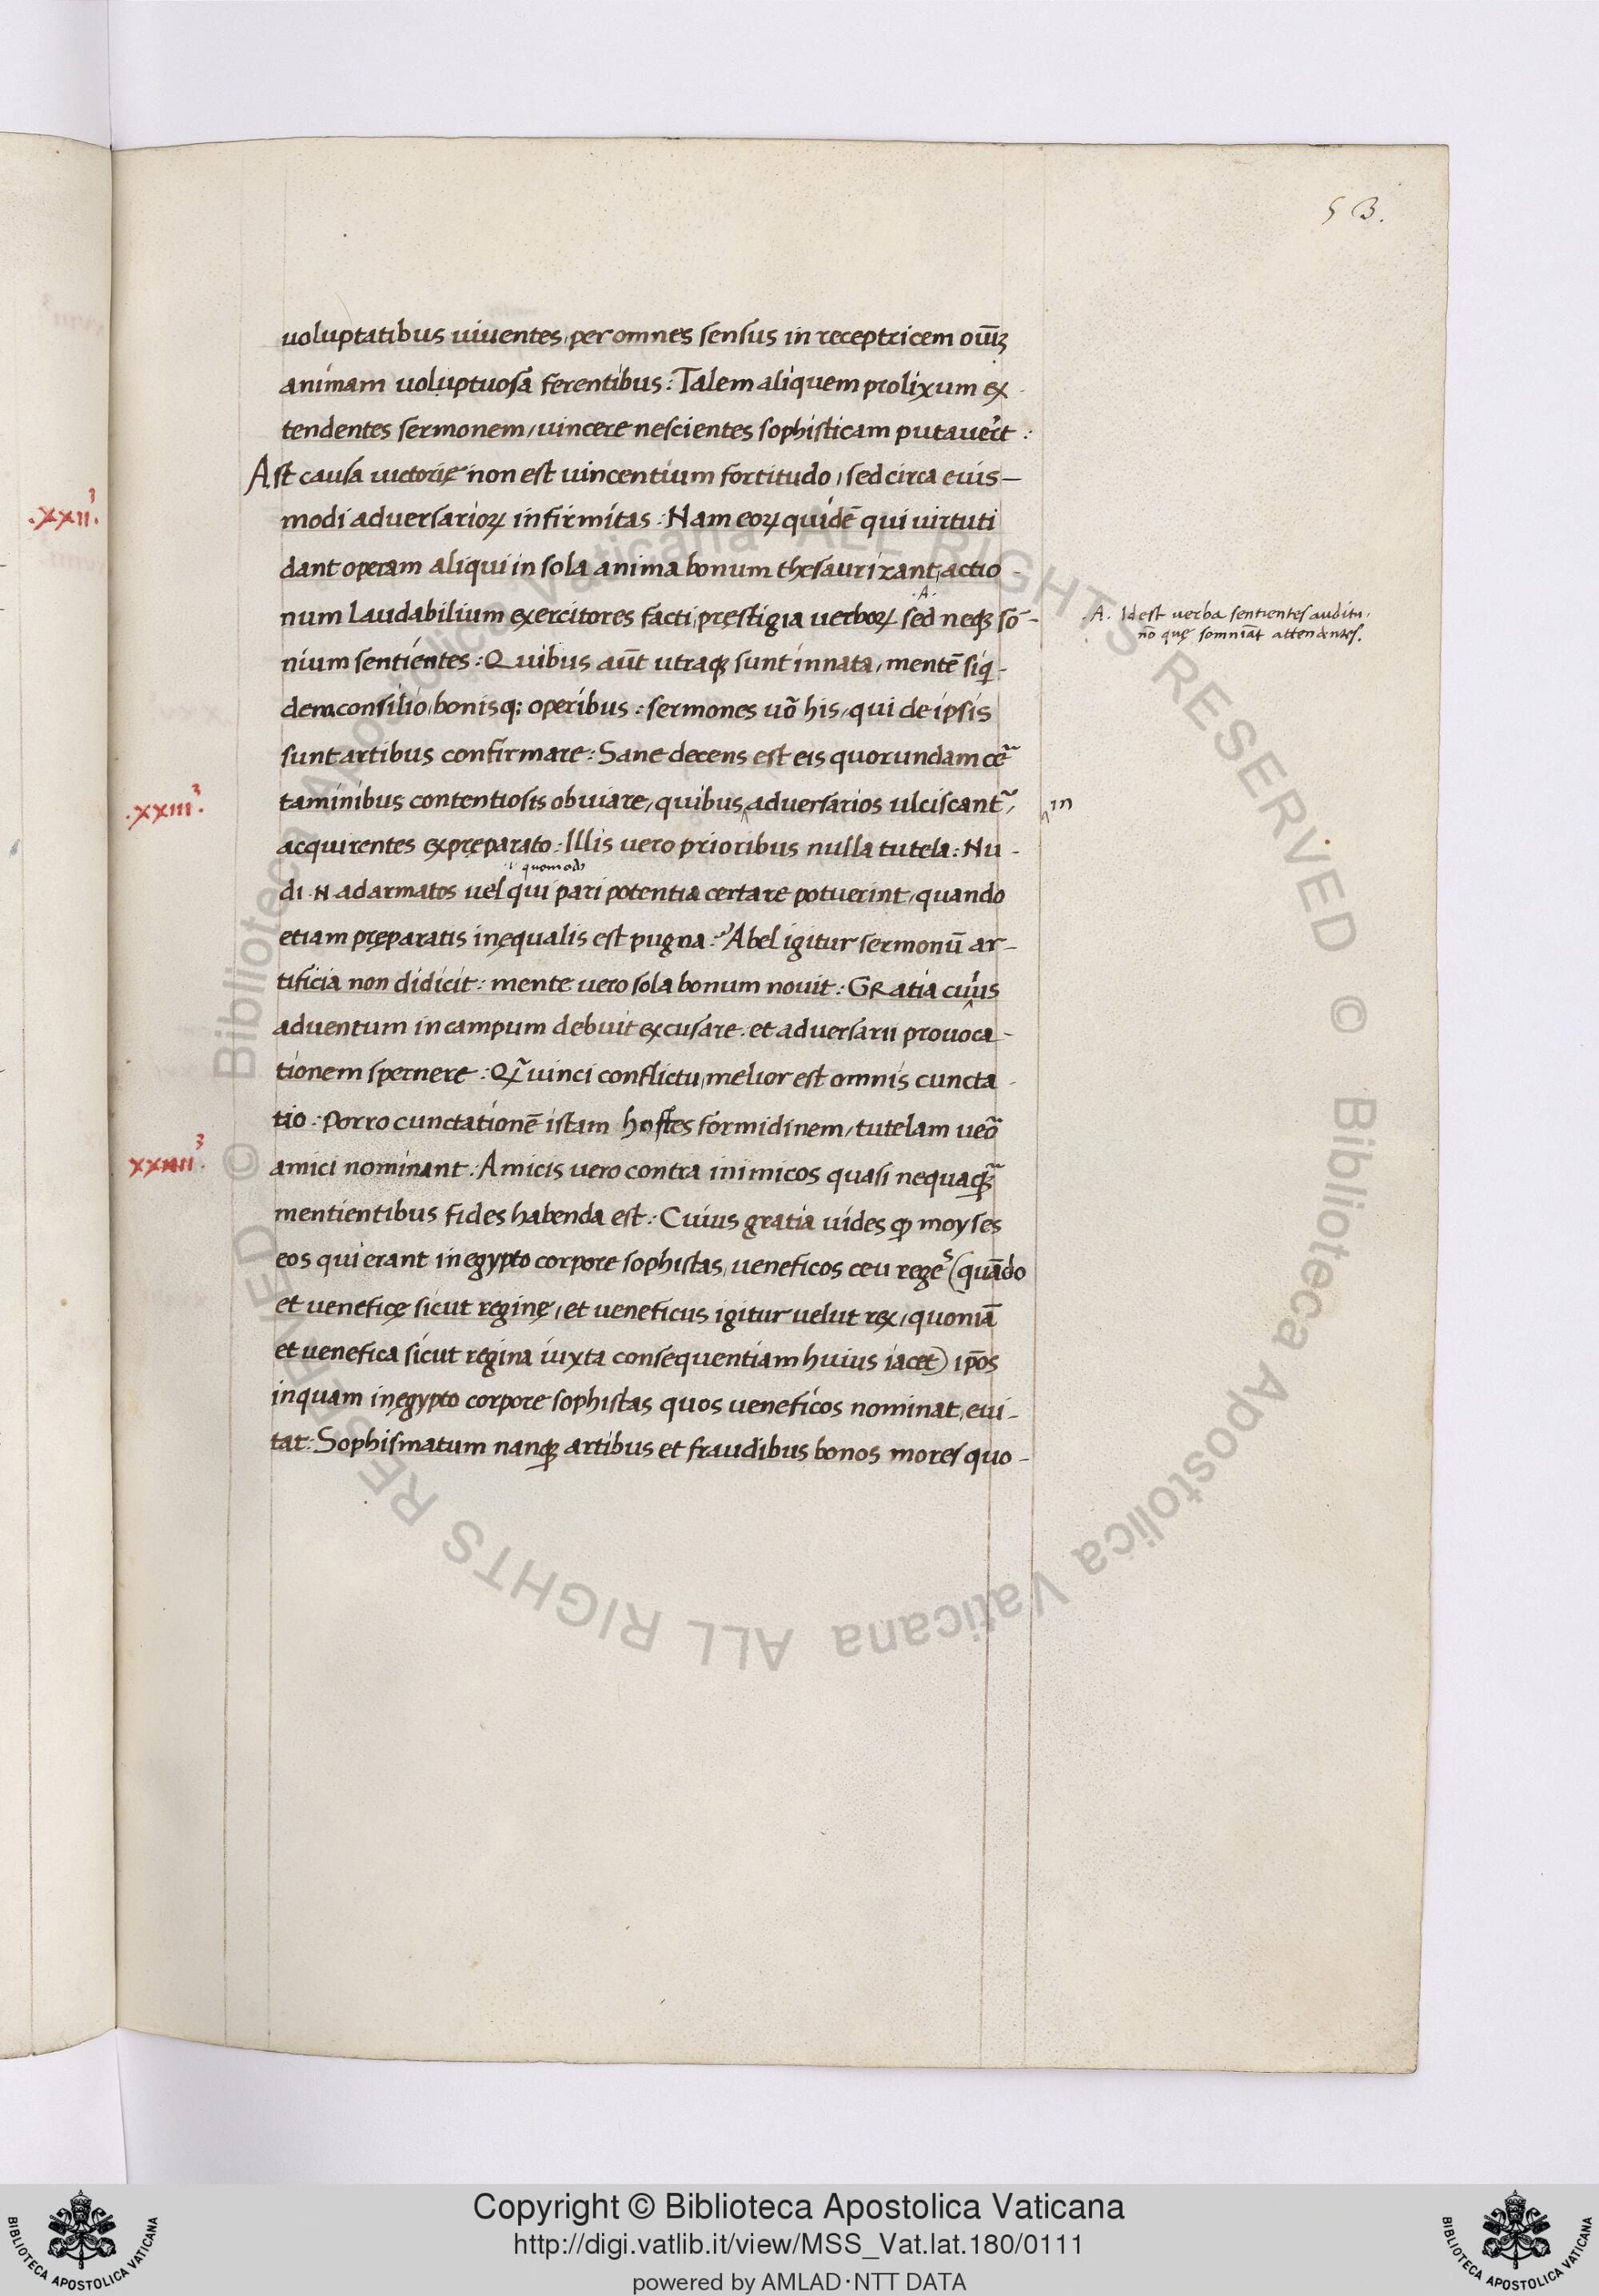 53.
voluptatibus uiuentes, per omnes sensus in receptricem oīuȝ
animam uoluptuosā ferentibus: Talem aliquem prolixum ex
tendentes sermonem, uincere nescientes sophisticam putauer̄t:
Ast causa uictorię non est uincentium fortitudo, sed circa euis-
modi aduersarioꝝ infirmitas: Nam eoꝝ quidē qui uirtuti
dant operam aliqui in sola anima bonum thesaurizant, actio-
.A.
num laudabilium exercitores facti, pręstigia uerboꝝ sed neqꝫ sō-
.A. Id est uerba sentientes auditu.
nō quę somniāt attendentes.
nium sentientes: Quibus aūt utraqꝫ sunt innata, mentē siq̣-
dem consilio, bonisq; operibus: sermones uō his, qui de ipsis
sunt artibus confirmare: Sane decens est eis quorundam cer̄
.XXII.³
.XXIII³.
taminibus contentiosis obuiare, quibus aduersarios ulciscant̄,
in
acquirentes ex pręparato: Illis uero prioribus nulla tutela: Nu-
.i. quomodo
di .N. ad armatos uel qui pari potentia certare potuerint, quando
etiam pręparatis inęqualis est pugna: Abel igitur sermonū ar-
tificia non didicit: mente uero sola bonum nouit: GRatia cuius
aduentum in campum debuit excusare. et aduersarii prouoca-
tionem spernere: Qꝫ̄ uinci conflictu, melior est omnis cuncta-
tio: Porro cunctationē istam hostes formidinem, tutelam ueō
XXIIII³.
amici nominant: Amicis uero contra inimicos quasi nequaqꝫ̄
mentientibus fides habenda est: Cuius gratia uides ꝙ moyses
eos qui erant in egypto corpore sophistas, ueneficos ceu reges (quādo
et ueneficę sicut reginę, et ueneficus igitur uelut rex, quoniā
et uenefica sicut regina iuxta consequentiam huius iacet) ip̄os
inquam in ęgypto corpore sophistas quos ueneficos nominat, eui-
tat: Sophismatum nanqꝫ artibus et fraudibus bonos mores quo-
Copyright © Biblioteca Apostolica Vaticana
http://digi.vatlib.it/view/MSS_Vat.lat.180/0111
powered by AMLAD·NTT DATA
BIBLIOTECA APOSTOLICA VATICANA
BIBLIOTECA APOSTOLICA VATICANA
© Biblioteca Apostolica Vaticana ALL RIGHTS RESERVED
© Biblioteca Apostolica Vaticana ALL RIGHTS RESERVED